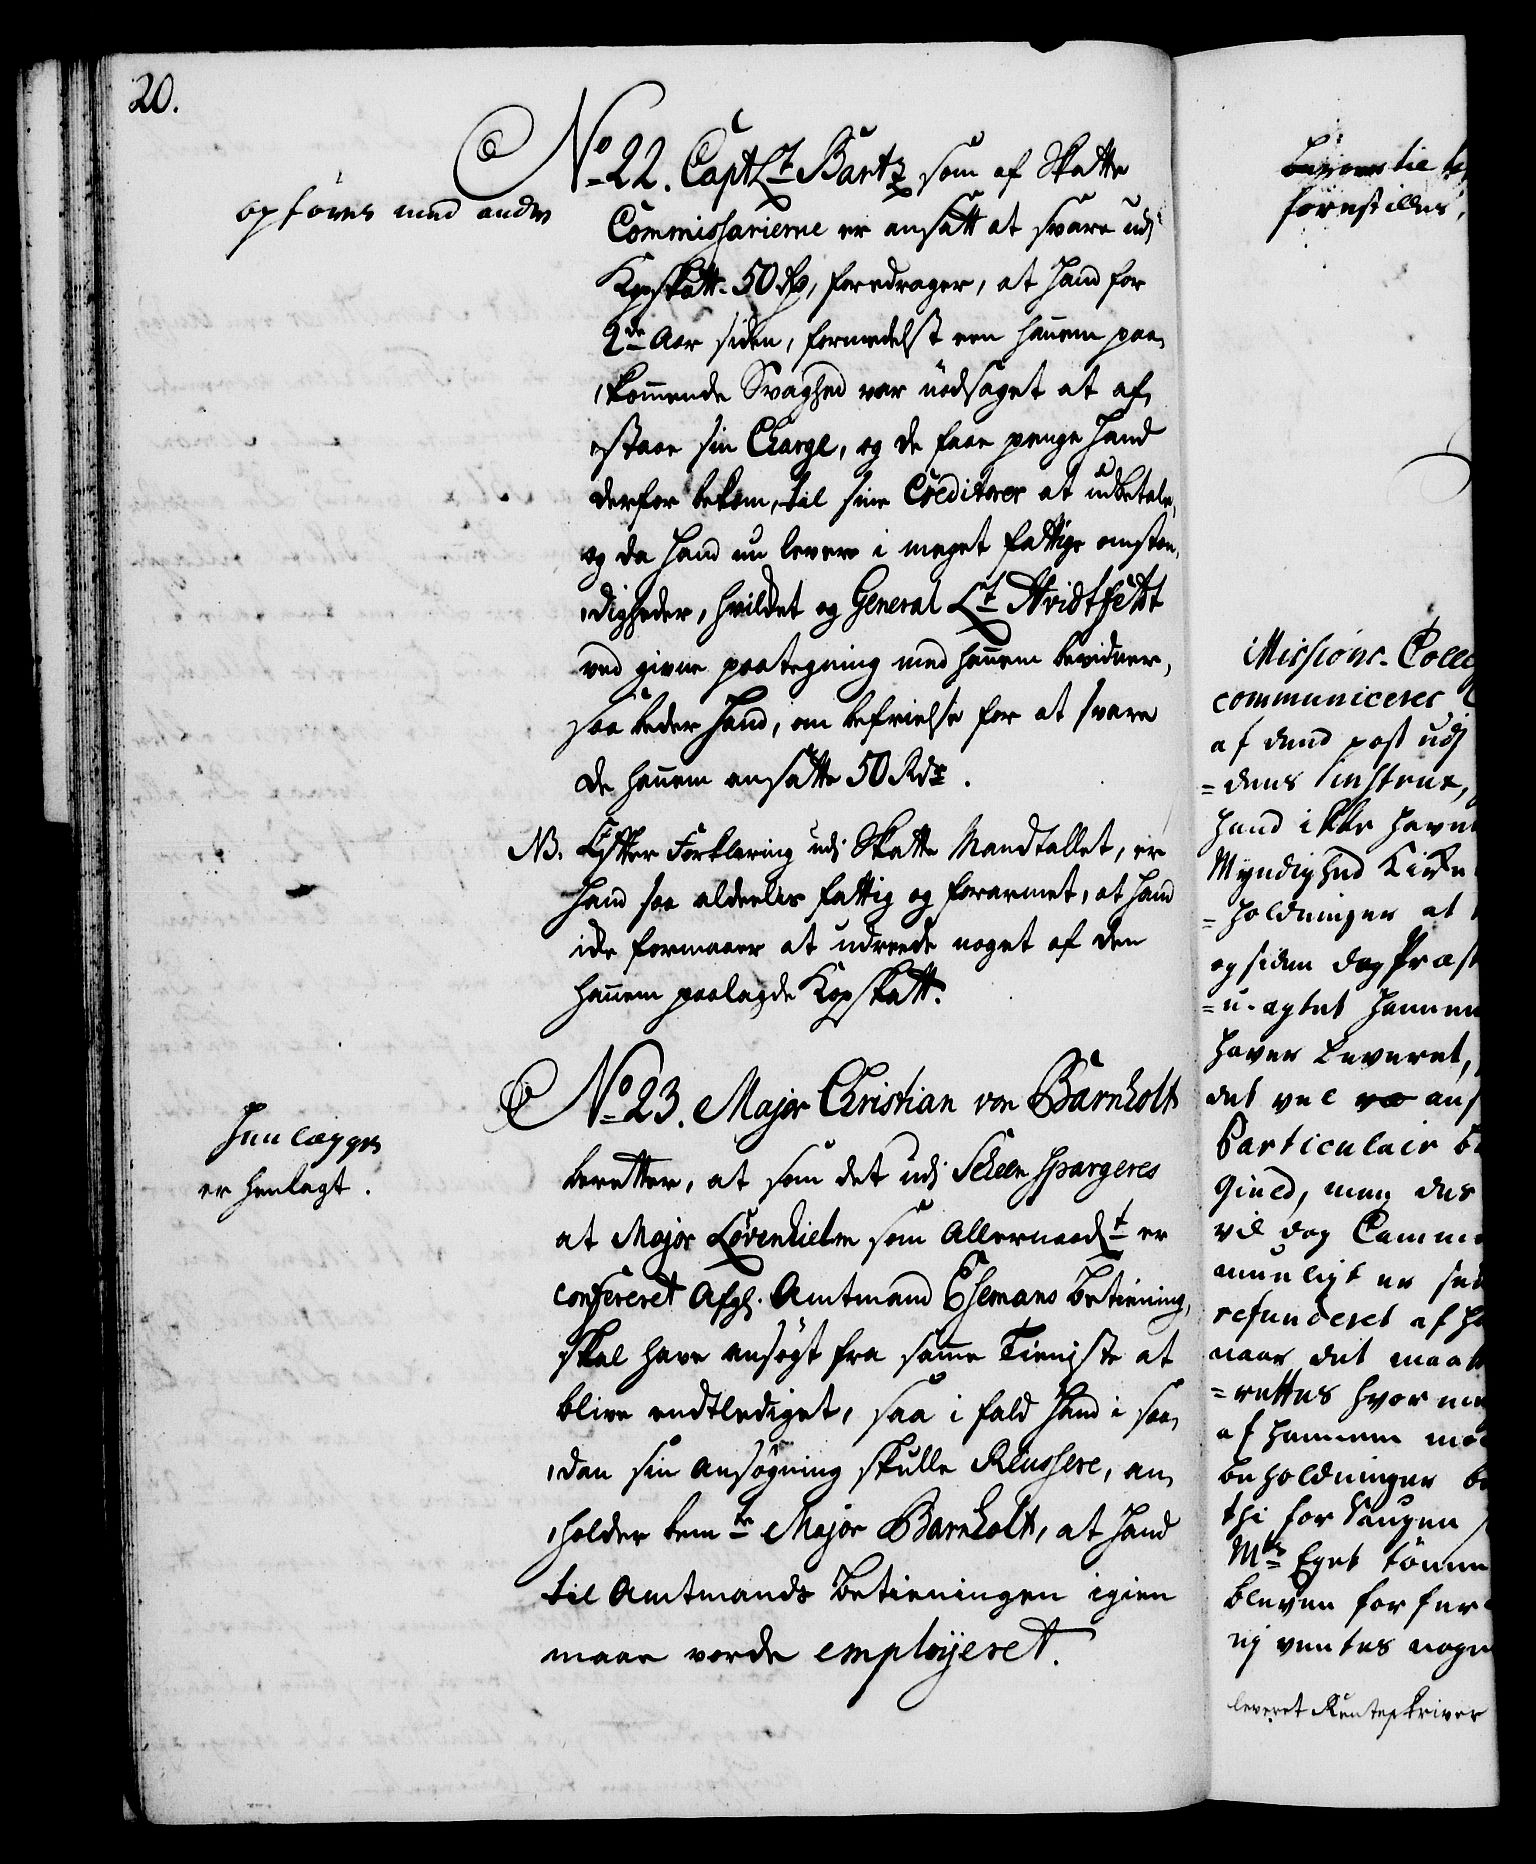 20.
No 22. Capt Lt Bartz som af Skatte
opføres med andre
Commissarierne er ansatt at svare udj
Kopskatt 50 Rd, foredrager, at hand for
2de Aar siden, formedelst een hannem paa,
,kommende Svaghed var nødsaget at af,
,staae sin Charge, og de faae penge hand
derfor bekom, til sine Creditorer at udbetale,
og da hand nu lever i meget fattige omstæn,
,digheder, hvilket og General Lt Hvidtfeldt
ved givne paategning med hannem bevidner,
saa beder hand, om befrielse for at svare
de hannem ansatte 50 Rdr.
NB. Efter Forklaring udj Skatte Mandtallet, er
hand saa alderles fattig og forarmet, at hand
icke formaaer at udreede noget af den
hannem paalagde Kopskatt.
No 23. Major Christian von Barnholt
Henlægges
er henlagt.
beretter, at som det udj Scheen spargeres
at Major Løvenhielm som Allernaadt er
confereret Afg. Amtmand Ehsmans betiening,
skal have ansøgt fra samme Tieniste at
blive endtlediget, saa i fald hand i saa,
,dan sin ansøgning skulle Reussere, an,
,holder bemte Major Barnholt, at hand
til Amtmands betieningen igien
maae vorde employeret.
til
forestilles,
Missions-Colleg
communiceret
af dend post udj
=dens Instrux,
hand ikke haver
Myndighed
=holdninger at
og siden dog Præst
=u-agtet hannem
haver leveret,
det vel ans
Particulair
Gield, meg des
vil dog Comm
mueligt er
refunderet af
naar det maatte
=rettes hvor
af hannem
beholdninger
thi for
Mts Eget
bleven for
ej ventes nogen
leveret Renteskriver